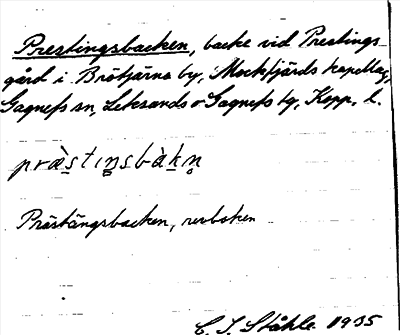 Prestingsbacken, backe vid Prestings-
gård i Brötjärna by, Mockfjärds kapellag,
Gagnefs sn, Leksands o Gagnefs tg, Kopp. l.
præ̀stiṉsbàkn̥
Prästängsbacken, reuboken
C. I. Ståhle 1935